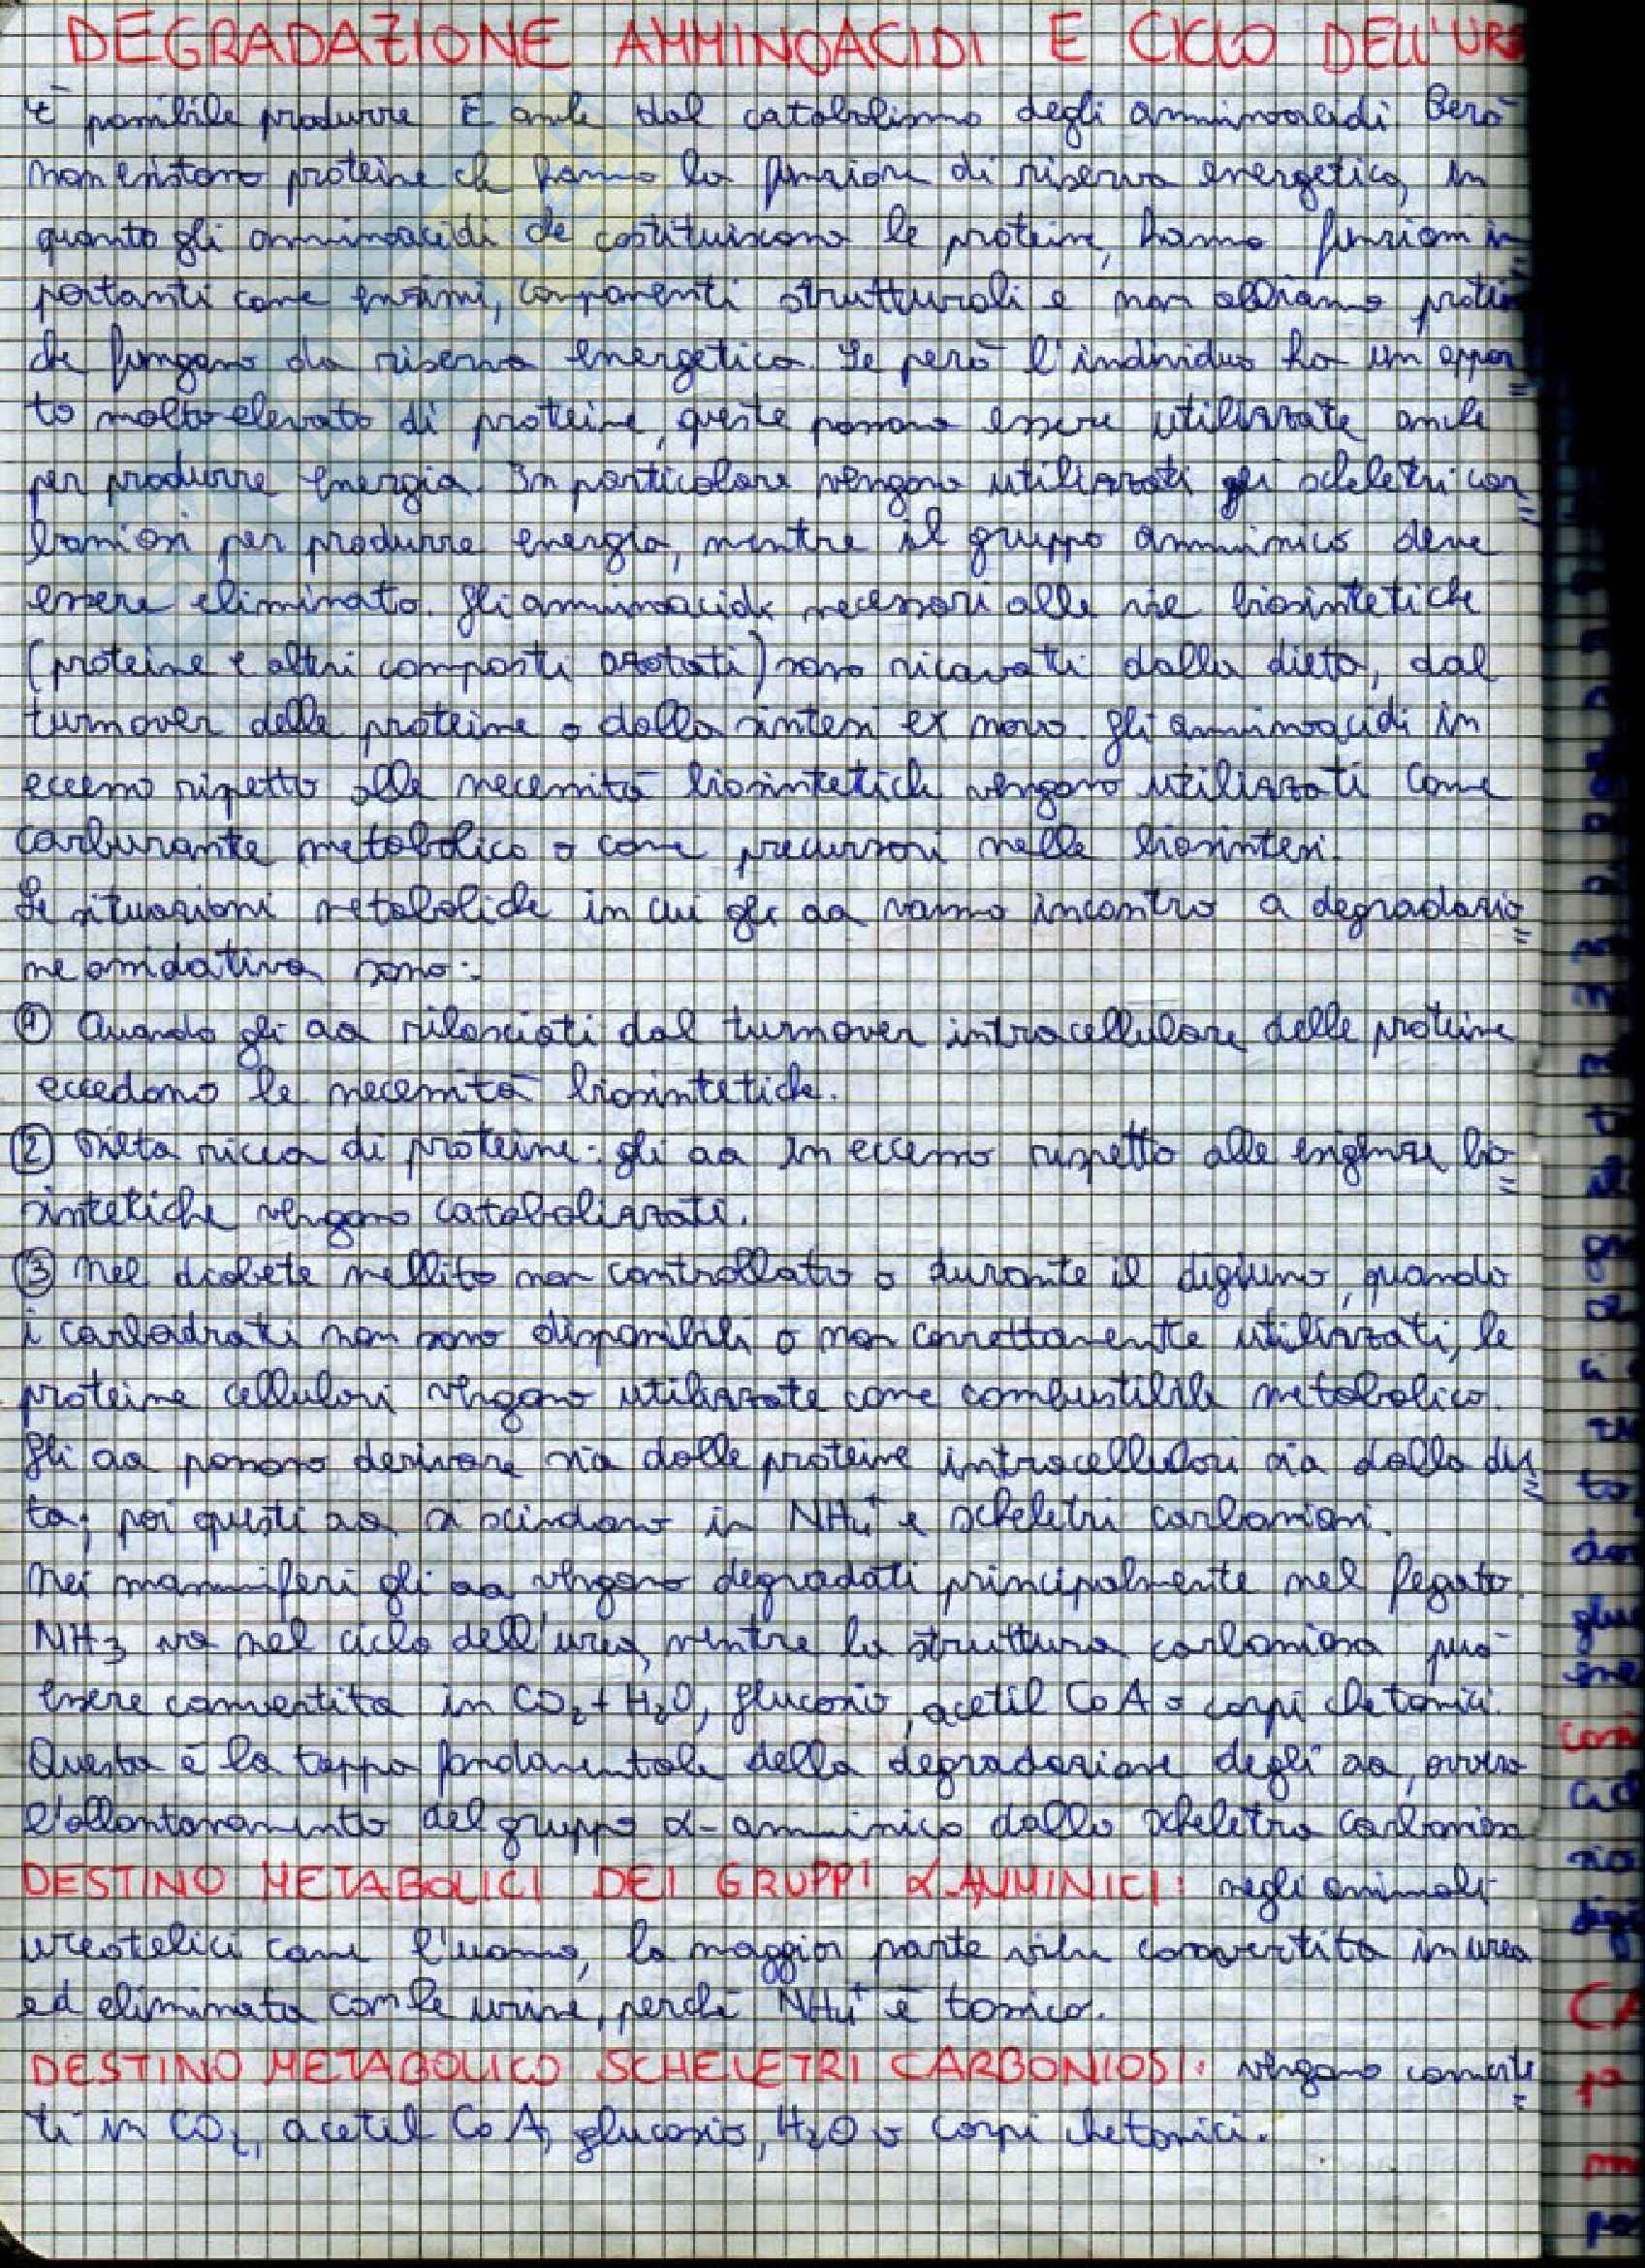 DEGRADAZIONE AMMINOACIDI E CICLO DELL'URE
È possibile produrre E anche dal catabolismo degli amminoacidi. Però
non esistono proteine che hanno la funzione di riserva energetica, in
quanto gli amminoacidi che costituiscono le proteine, hanno funzioni im
portanti come enzimi, componenti strutturali e non abbiamo protein
che fungano da riserva energetica. Se però l'individuo ha un appor
to molto elevato di proteine, queste possono essere utilizzate anche
per produrre energia. In particolare vengono utilizzati gli scheletri car
boniosi per produrre energia, mentre il gruppo amminico deve
essere eliminato. Gli amminoacidi necessari alle vie biosintetiche
(proteine e altri composti azotati) sono ricavati dalla dieta, dal
turnover delle proteine o dalla sintesi ex novo. Gli amminoacidi in
eccesso rispetto alle necessità biosintetiche vengono utilizzati come
carburante metabolico o come precursori nelle biosintesi.
Le situazioni metaboliche in cui gli aa vanno incontro a degradazio
ne ossidativa sono:
① Quando gli aa rilasciati dal turnover intracellulare delle proteine
eccedono le necessità biosintetiche.
② Dieta ricca di proteine: gli aa in eccesso rispetto alle esigenze bio
sintetiche vengono catabolizzati.
③ Nel diabete mellito non controllato o durante il digiuno, quando
i carboidrati non sono disponibili o non correttamente utilizzati, le
proteine cellulari vengono utilizzate come combustibile metabolico.
Gli aa possono derivare sia dalle proteine intracellulari sia dalla die
ta; poi questi aa si scindono in NH₄⁺ e scheletri carboniosi.
Nei mammiferi gli aa vengono degradati principalmente nel fegato.
NH₃ va nel ciclo dell'urea, mentre la struttura carboniosa può
essere convertita in CO₂ + H₂O, glucosio, acetil CoA o corpi chetonici.
Questa è la tappa fondamentale della degradazione degli aa, ovvero
l'allontanamento del gruppo α-amminico dallo scheletro carbonioso
DESTINO METABOLICI DEI GRUPPI α-AMMINICI: negli animali
ureotelici come l'uomo, la maggior parte viene convertita in urea
ed eliminata con le urine, perché NH₄⁺ è tossico.
DESTINO METABOLICO SCHELETRI CARBONIOSI: vengono converti
ti in CO₂, acetil CoA, glucosio, H₂O o corpi chetonici.